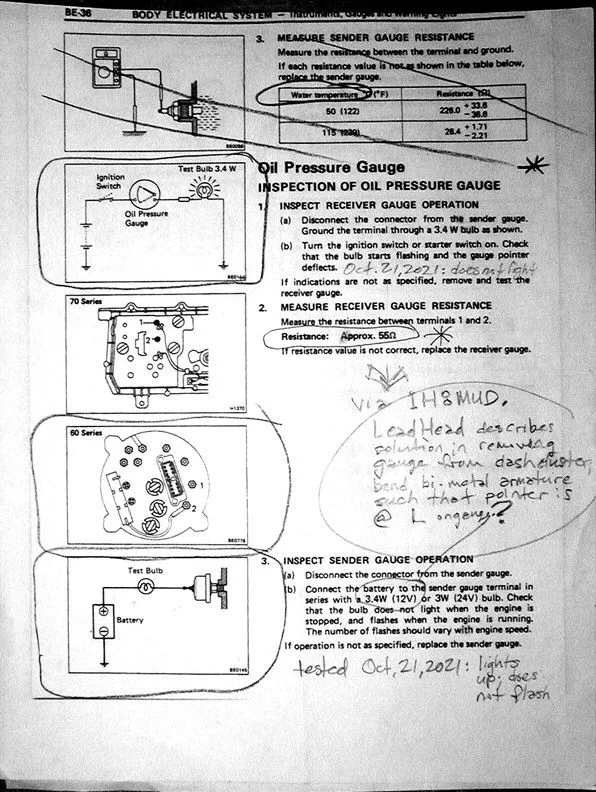 BE-36
BODY ELECTRICAL SYSTEM — Instruments, Gauges and Warning Lights
3. MEASURE SENDER GAUGE RESISTANCE
Measure the resistance between the terminal and ground.
If each resistance value is not as shown in the table below,
replace the sender gauge.
Water temperature °C (°F) Resistance (Ω)
50 (122) 226.0 + 33.6 − 36.6
115 (239) 26.4 + 1.71 − 2.21
Oil Pressure Gauge
INSPECTION OF OIL PRESSURE GAUGE
Ignition
Switch
Test Bulb 3.4 W
Oil Pressure
Gauge
1. INSPECT RECEIVER GAUGE OPERATION
(a) Disconnect the connector from the sender gauge.
Ground the terminal through a 3.4 W bulb as shown.
(b) Turn the ignition switch or starter switch on. Check
that the bulb starts flashing and the gauge pointer
deflects. Oct. 21, 2021: does not light
If indications are not as specified, remove and test the
receiver gauge.
70 Series
1
2
H1370
2. MEASURE RECEIVER GAUGE RESISTANCE
Measure the resistance between terminals 1 and 2.
Resistance: Approx. 55Ω
If resistance value is not correct, replace the receiver gauge.
Via IH8MUD,
LeadHead describes
solution in removing
gauge from dash cluster,
bend bi-metal armature
such that pointer is
@ L on gauge?
60 Series
1
2
BE0776
3. INSPECT SENDER GAUGE OPERATION
(a) Disconnect the connector from the sender gauge.
(b) Connect the battery to the sender gauge terminal in
series with a 3.4W (12V) or 3W (24V) bulb. Check
that the bulb does not light when the engine is
stopped, and flashes when the engine is running.
The number of flashes should vary with engine speed.
If operation is not as specified, replace the sender gauge.
Test Bulb
Battery
BE0145
tested Oct, 21, 2021: lights
up; does
not flash